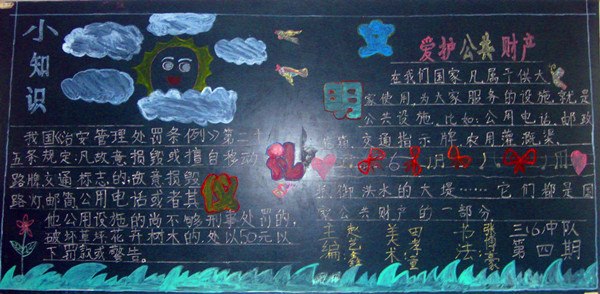 小知识
我国《治安管理处罚条例》第二十
五条规定:凡故意损毁或擅自移动
路牌交通标志的,故意损毁
路灯邮筒公用电话或者其
他公用设施的尚不够刑事处罚的,
破坏草坪花卉树木的,处以50元以
下罚款或警告。
文
明
礼
仪
爱护公共财产
在我们国家,凡属于供大
家使用,为大家服务的设施,就是
公共设施。比如:公用电话、邮政
信箱、交通指示牌、农用灌溉渠
抵御洪水的大堤……它们都是国
家公共财产的一部分
主编
美术
书法
三(6)中队
第四期